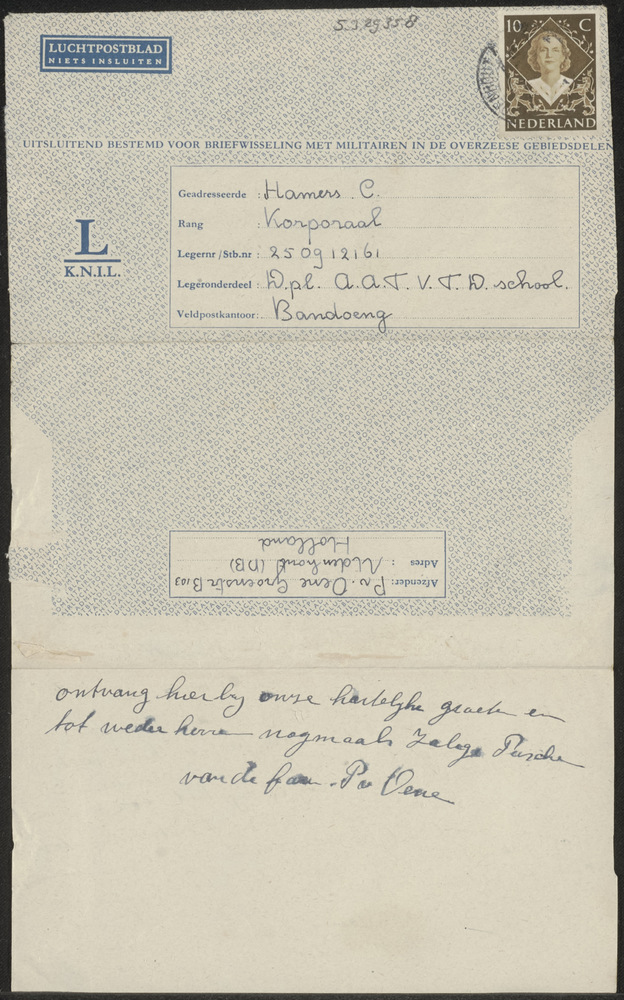 5329358
LUCHTPOSTBLAD
NIETS INSLUITEN
10 C
NEDERLAND
UITSLUITEND BESTEMD VOOR BRIEFWISSELING MET MILITAIREN IN DE OVERZEESE GEBIEDSDELEN
L
K.N.I.L.
Geadresseerde : Hamers C.
Rang : Korporaal
Legernr/Stb.nr : 250912161
Legeronderdeel : D.pl. A.A.T. V.T.D. school.
Veldpostkantoor: Bandoeng
Afzender: P. v. Oene Groenstr. B103
Adres : (NB)
Holland
ontvang hierbij onze hartelijke groeten en
tot weder horen nogmaals Zalige Pasche
van de fam. P v Oene